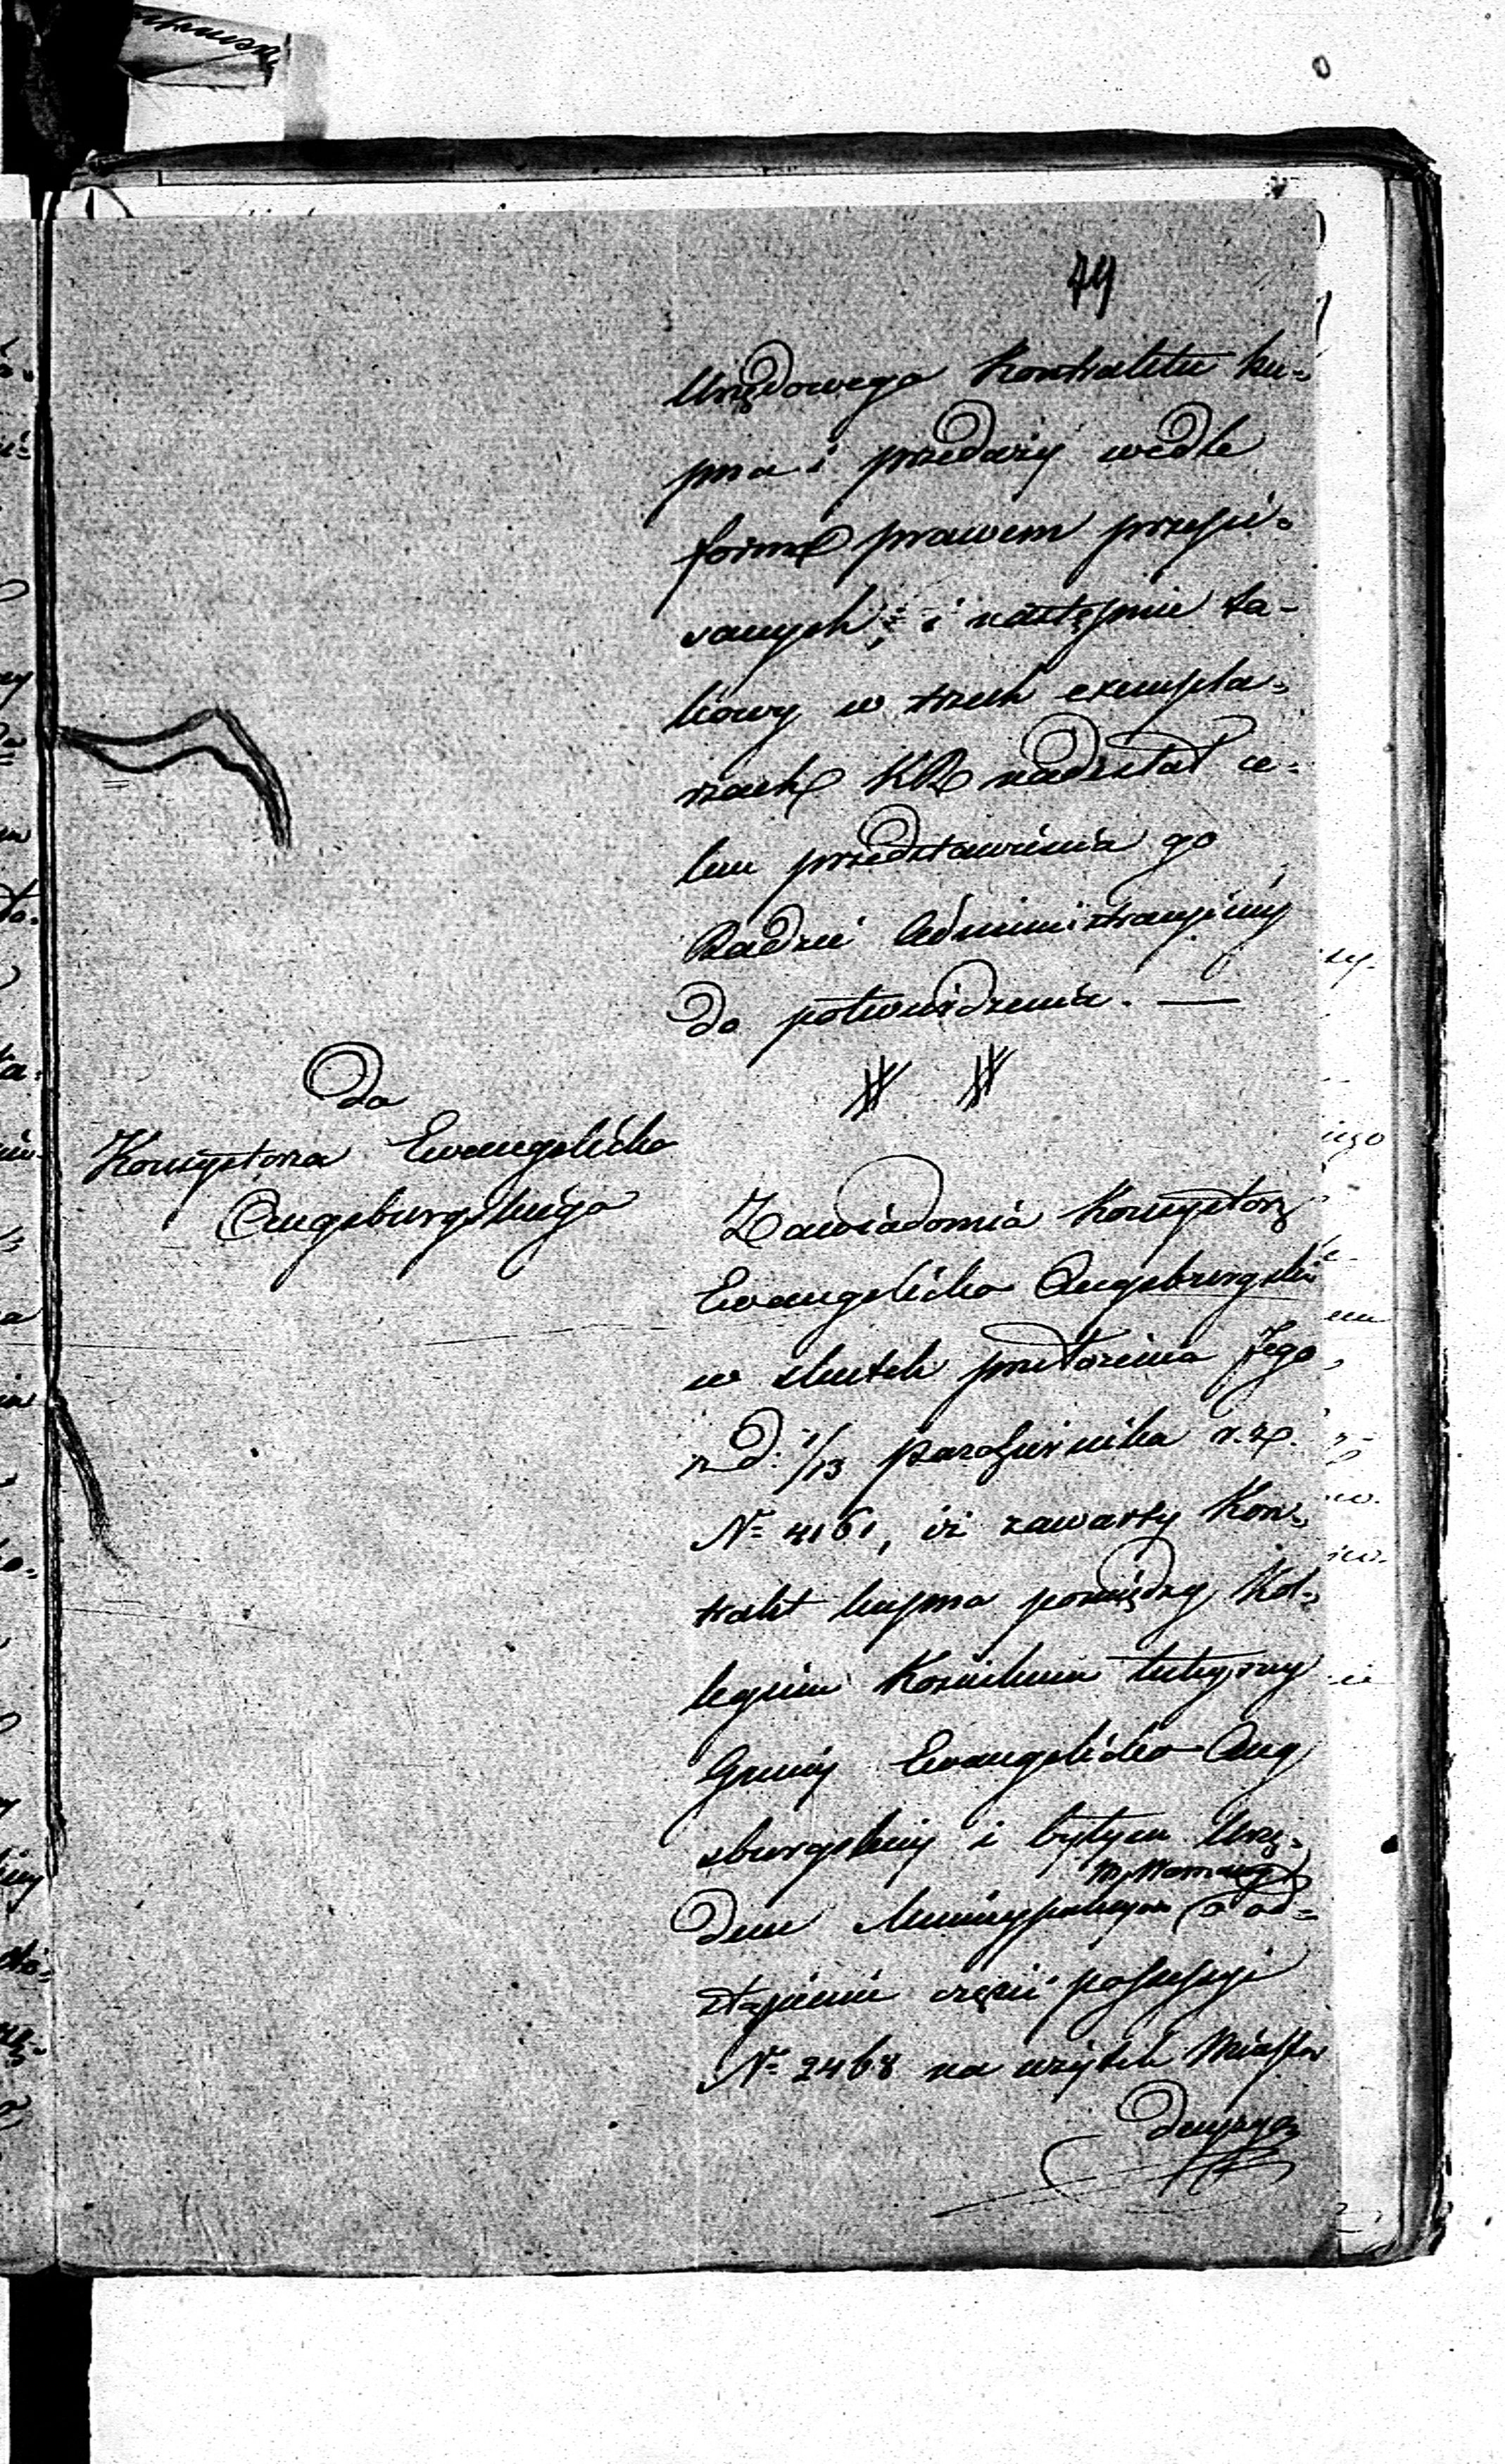 74
Urzędowego Kontraktu ku=
pna i przedaży wedle
form prawem przepi=
sanych i następnie ta-
kowy w trzech exempla=
rzach KR nadesłał ce=
lem przedstawienia go
Radzie Administracyjnéy
do potwierdzenia. —
Do
Konsystorza Ewangelicko
Augsburgskiego
Zawiadomia Konsystorz
Ewangelicko Augsburgski
w skutek przełożenia Jego
z d. 1/13 Października r. z.
Nº 4161, iż zawarty Kon=
trakt kupna pomiędzy Kol=
legium Kościelnem tutejszey
Gminy Ewangelicko Aug
sburgskiey i byłym Urzę=
dem Municypalnym o od=
stąpienie części possessyi
Nº 2468 na użytek Miasta